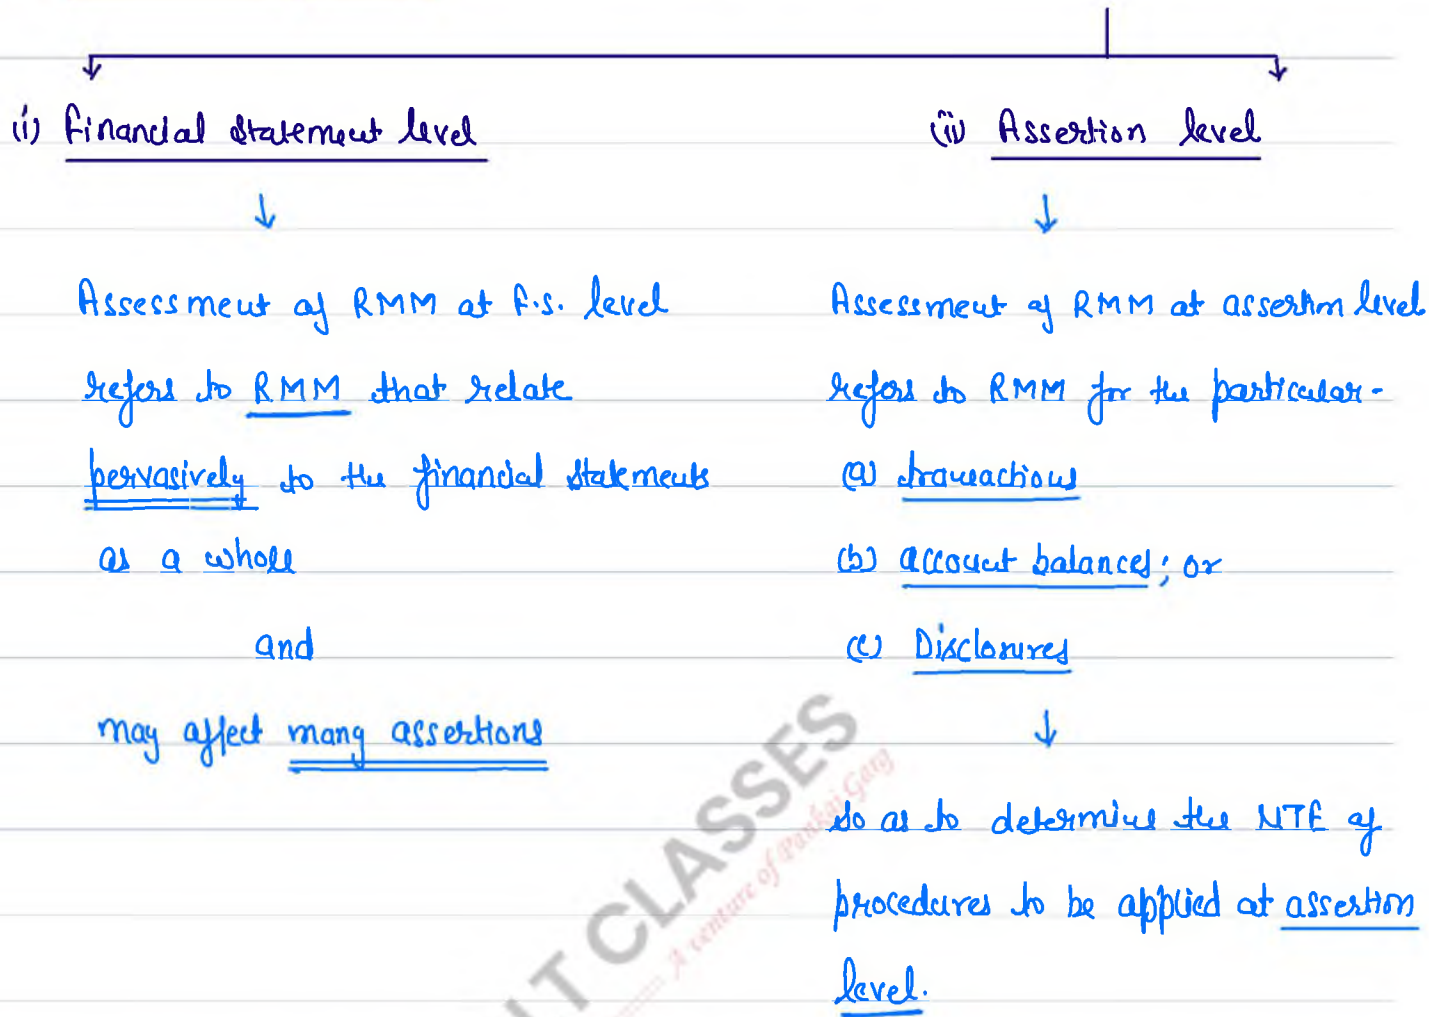 (i) Financial Statement level
Assessment of RMM at F.S. level
refers to RMM that relate
pervasively to the financial statements
as a whole
and
may affect many assertions
(ii) Assertion level
Assessment of RMM at assertion level
refers to RMM for the particular-
(a) transactions
(b) account balances; or
(c) Disclosures
so as to determine the NTE of
procedures to be applied at assertion
level.
T CLASSES
A venture of Pankaj Garg